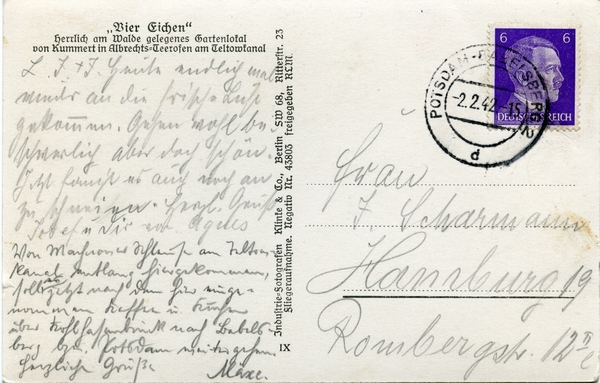 „Vier Eichen“
Herrlich am Walde gelegenes Gartenlokal
von Kummert in Albrechts-Teerofen am Teltowkanal
L. J. + J. Heute endlich mal
wieder an die frische Luft
gekommen. Gehen wohl be-
schwerlich aber doch schön.
Jetzt fängt es auch noch an
zu schneien. Herzl. Grüße
Josef u.
Von Machnower Schleuse am Teltow-
kanal entlang hiergekommen,
nach dem hier einge-
nommenen Kaffee u. Kuchen
über Kohlhasenbrück nach Babels-
berg bzw. Potsdam weitergehen.
Herzliche Grüße
Industrie-Fotografen Klinke & Co., Berlin SW 68, Ritterstr. 23
Fliegeraufnahme. Negativ Nr. 43803 freigegeben RLM.
IX
POTSDAM-BABELSBERG 2
-2.2.42.-15
d
6 6
DEUTSCHES REICH
Frau
J. Scharmann
Hamburg 19
Rombergstr. 12